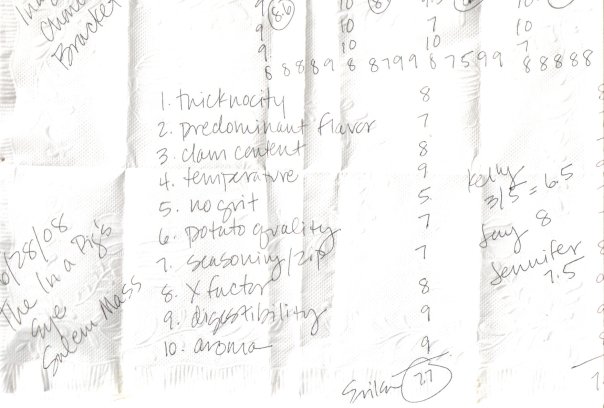 Chowder
Bracket
9 8.6 10 8
9 10 7 10
9 10 10 7
8 8 8 8 9 8 8 7 9 9 8 7 5 9 9 8 8 8 8 8
1. thicknocity 8
2. predominant flavor 7
3. clam content 8
4. temperature 9
5. no grit 5
6. potato quality 7
7. seasoning/zip 7
8. X factor 8
9. digestibility 9
10. aroma 9
Kelly
3/5 = 6.5
Jay 8
Jennifer
7.5
/28/08
The In a Pig's
Eye
Salem Mass
27